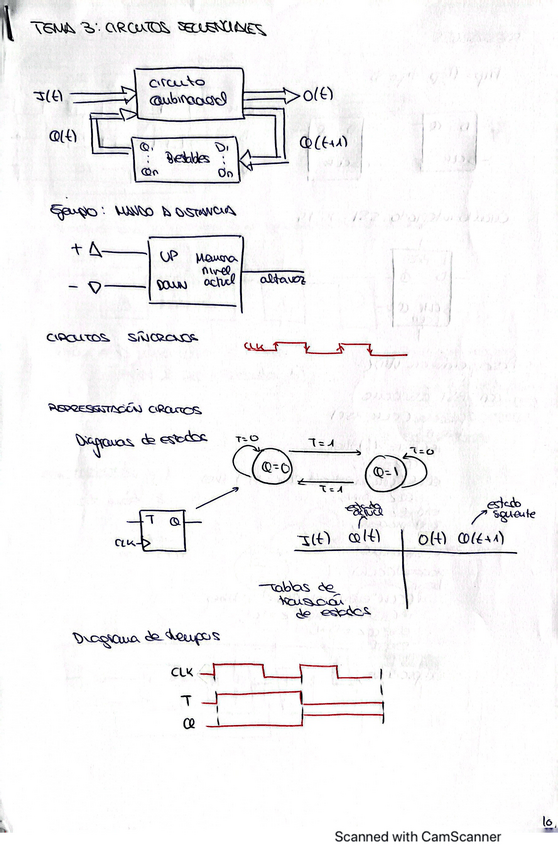 TEMA 3: CIRCUITOS SECUENCIALES
I(t)
Circuito
combinacional
O(t)
Q(t)
Q1 Biestables D1
Qn Dn
Q(t+1)
Ejemplo: MANDO A DISTANCIA
+ UP Memoria
nivel
- DOWN actual altavoz
CIRCUITOS SÍNCRONOS CLK
REPRESENTACIÓN CIRCUITOS
Diagramas de estados
T=0 Q=0 T=1 Q=1 T=0
T=1
T Q
CLK
estado
actual
estado
siguiente
I(t) Q(t) O(t) Q(t+1)
Tablas de
transición
de estados
Diagrama de tiempos
CLK
T
Q
10
Scanned with CamScanner